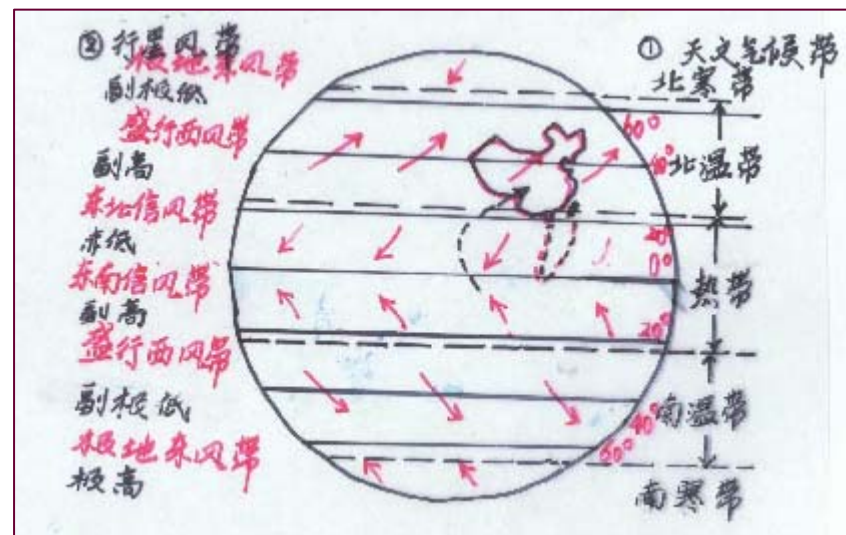 ②行星风带
极地东风带
副极低
盛行西风带
副高
东北信风带
赤低
东南信风带
副高
盛行西风带
副极低
极地东风带
极高
①天文气候带
北寒带
60°
北温带
20°
0°
热带
20°
40°
南温带
60°
南寒带